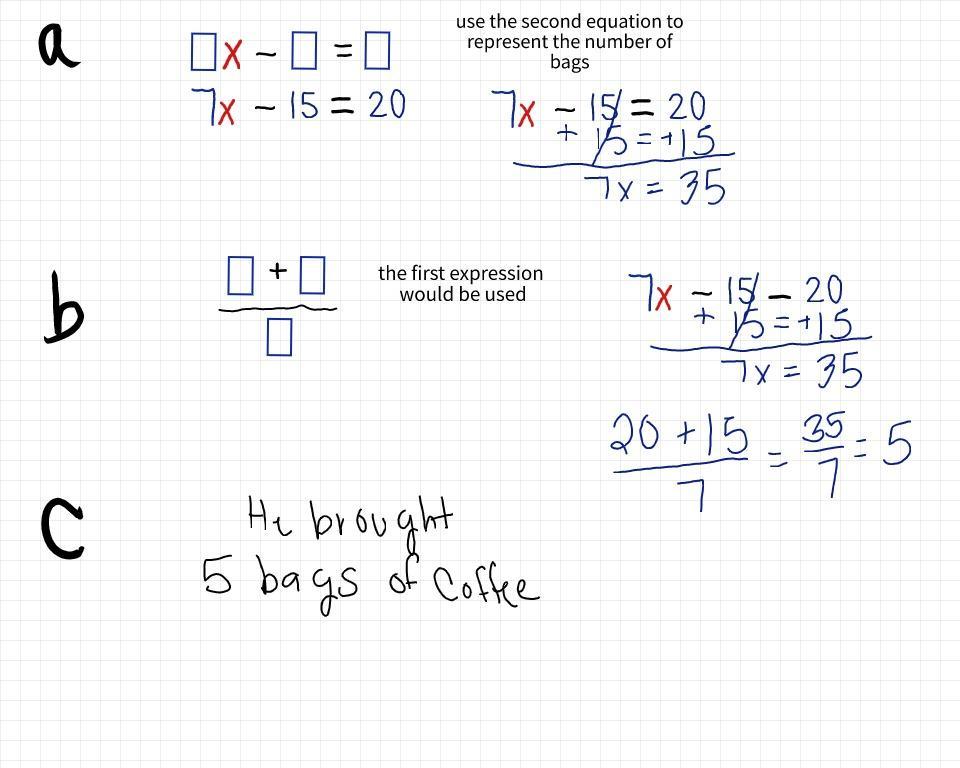 a
□x - □ = □
7x - 15 = 20
use the second equation to
represent the number of
bags
7x - 15 = 20
+ 15 = +15
7x = 35
b
□ + □
□
the first expression
would be used
7x - 15 - 20
+ 15 = +15
7x = 35
20 + 15 = 35 = 5
7 7
C
He brought
5 bags of Coffee